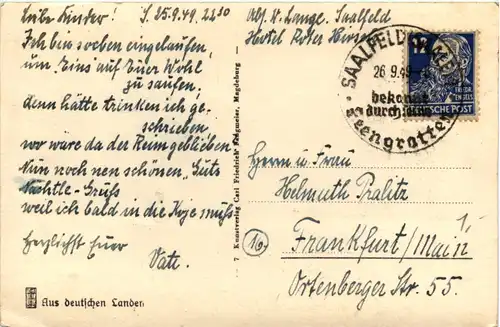 Liebe Kinder! S. 25.9.49. 22 30
Ich bin soeben eingelaufen,
um Eins auf Euer Wohl
zu saufen,
denn hätte trinken ich ge-
schrieben
wo ware da der Reim geblieben
Nun noch nen schönen „Guts
Nächtle-Gruß
weil ich bald in die Koje muß
Herzlichst Euer
Vati.
Aus deutschen Landen
7 Kunstverlag Carl Friedrich Magdeburg
Abs. W. Lange. Saalfeld
Hotel Roter Hirsch
SAALFELD
26.9.49
bekannt
durch
Feengrotten
12
ENGELS
DEUTSCHE POST
Herrn u. Frau
Helmuth Pralitz
Frankfurt/Main
Ortenberger Str. 55.
1,-